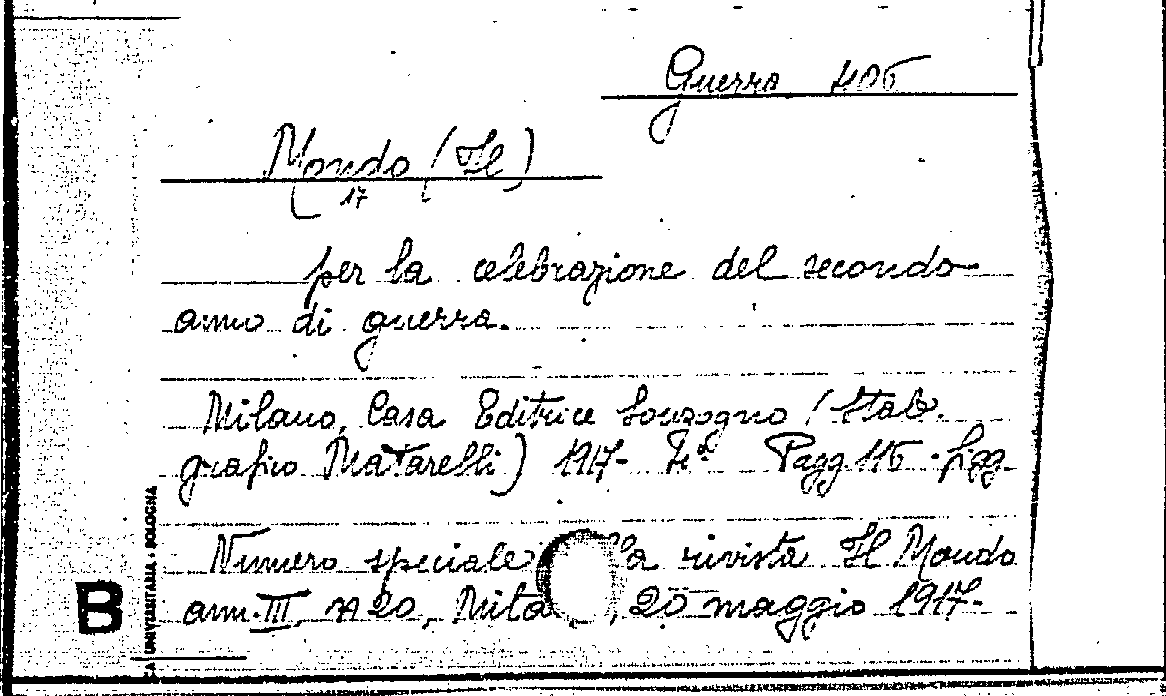 Guerra 405
Mondo (Il)
17
per la celebrazione del secondo
anno di guerra.
Milano, Casa Editrice Sonzogno (Stab.
grafico Matarelli) 1917- Pagg 115 - figg
Numero speciale rivista Il Mondo
ann. III, N 20, 20 maggio 1917-
B
UNIVERSITARIA - BOLOGNA